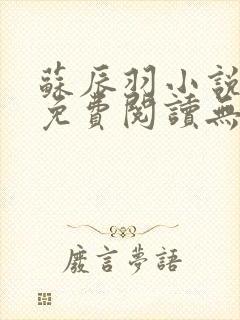 蘇辰羽小說
免費閱讀無
廢言夢語